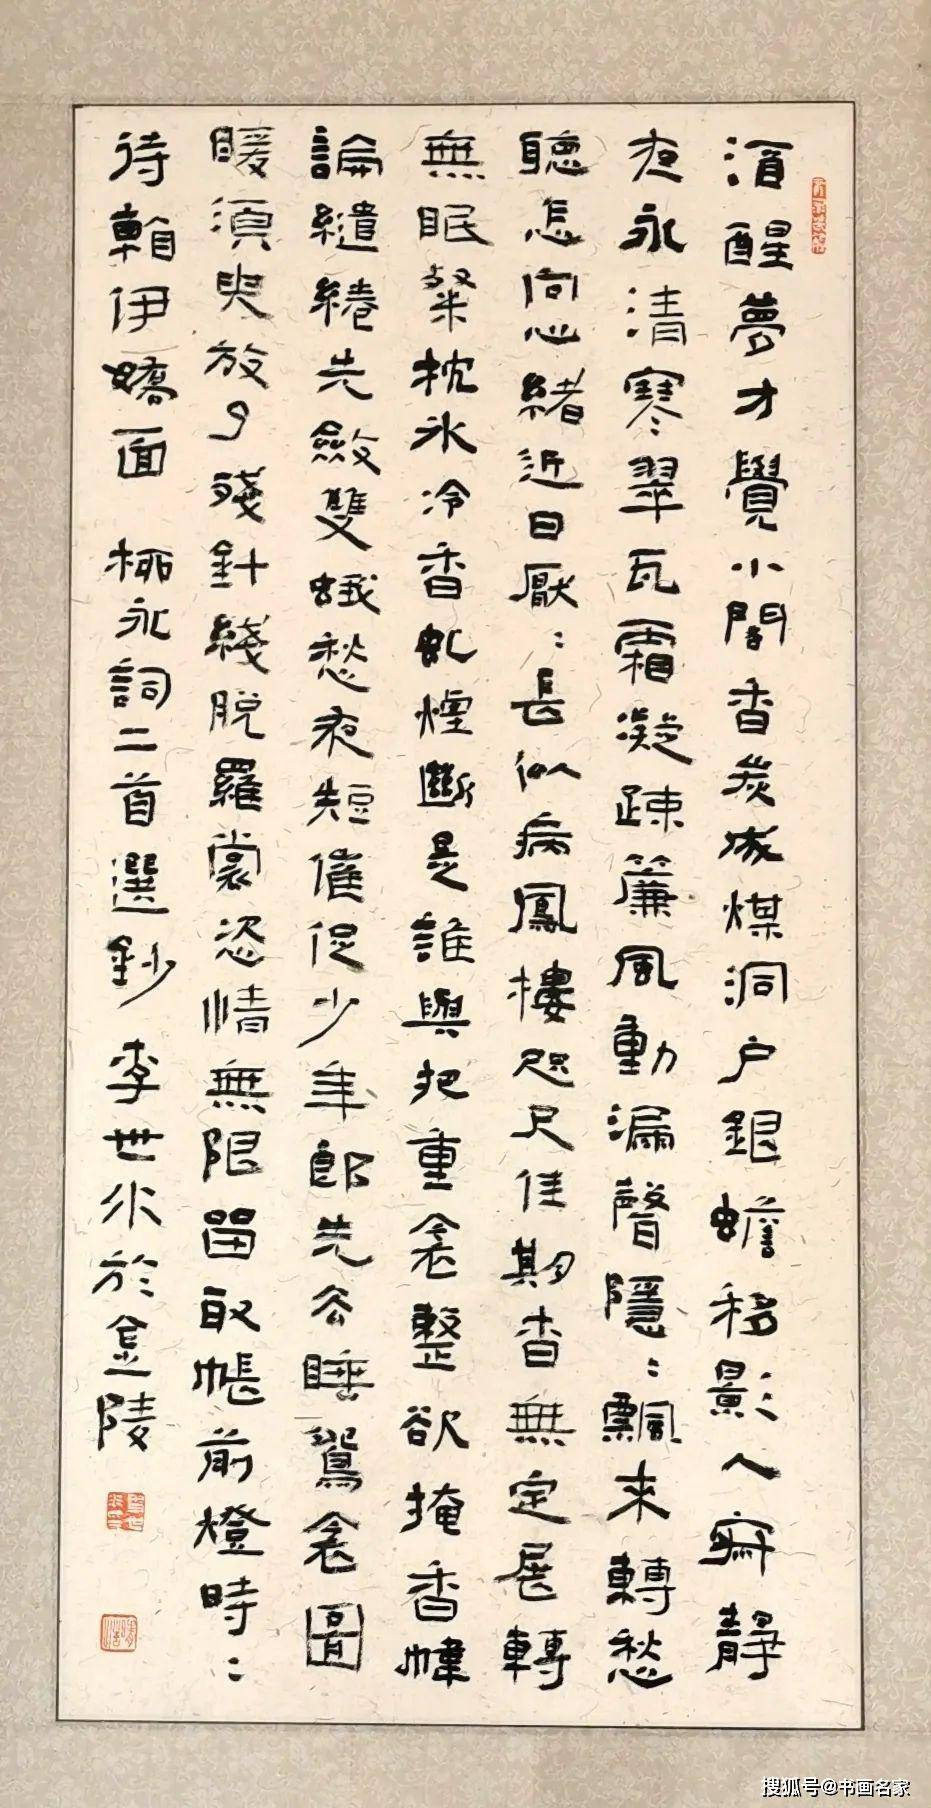 酒醒夢才覺小閣香炭成煤洞戶銀蟾移影人寂靜
夜永清寒翠瓦霜凝疎簾風動漏聲隱〻飄來轉愁
聽怎向心緒近日厭〻長似病鳳樓咫尺佳期杳無定展轉
無眠粲枕冰冷香虬煙斷是誰與把重衾整欲掩香幃
論繾綣先斂雙蛾愁夜短催促少年郎先去睡鴛衾圖
暖須臾放了殘針綫脫羅裳恣情無限留取帳前燈時〻
待看伊嬌面 柳永詞二首選鈔 李世尒於金陵
搜狐号@书画名家